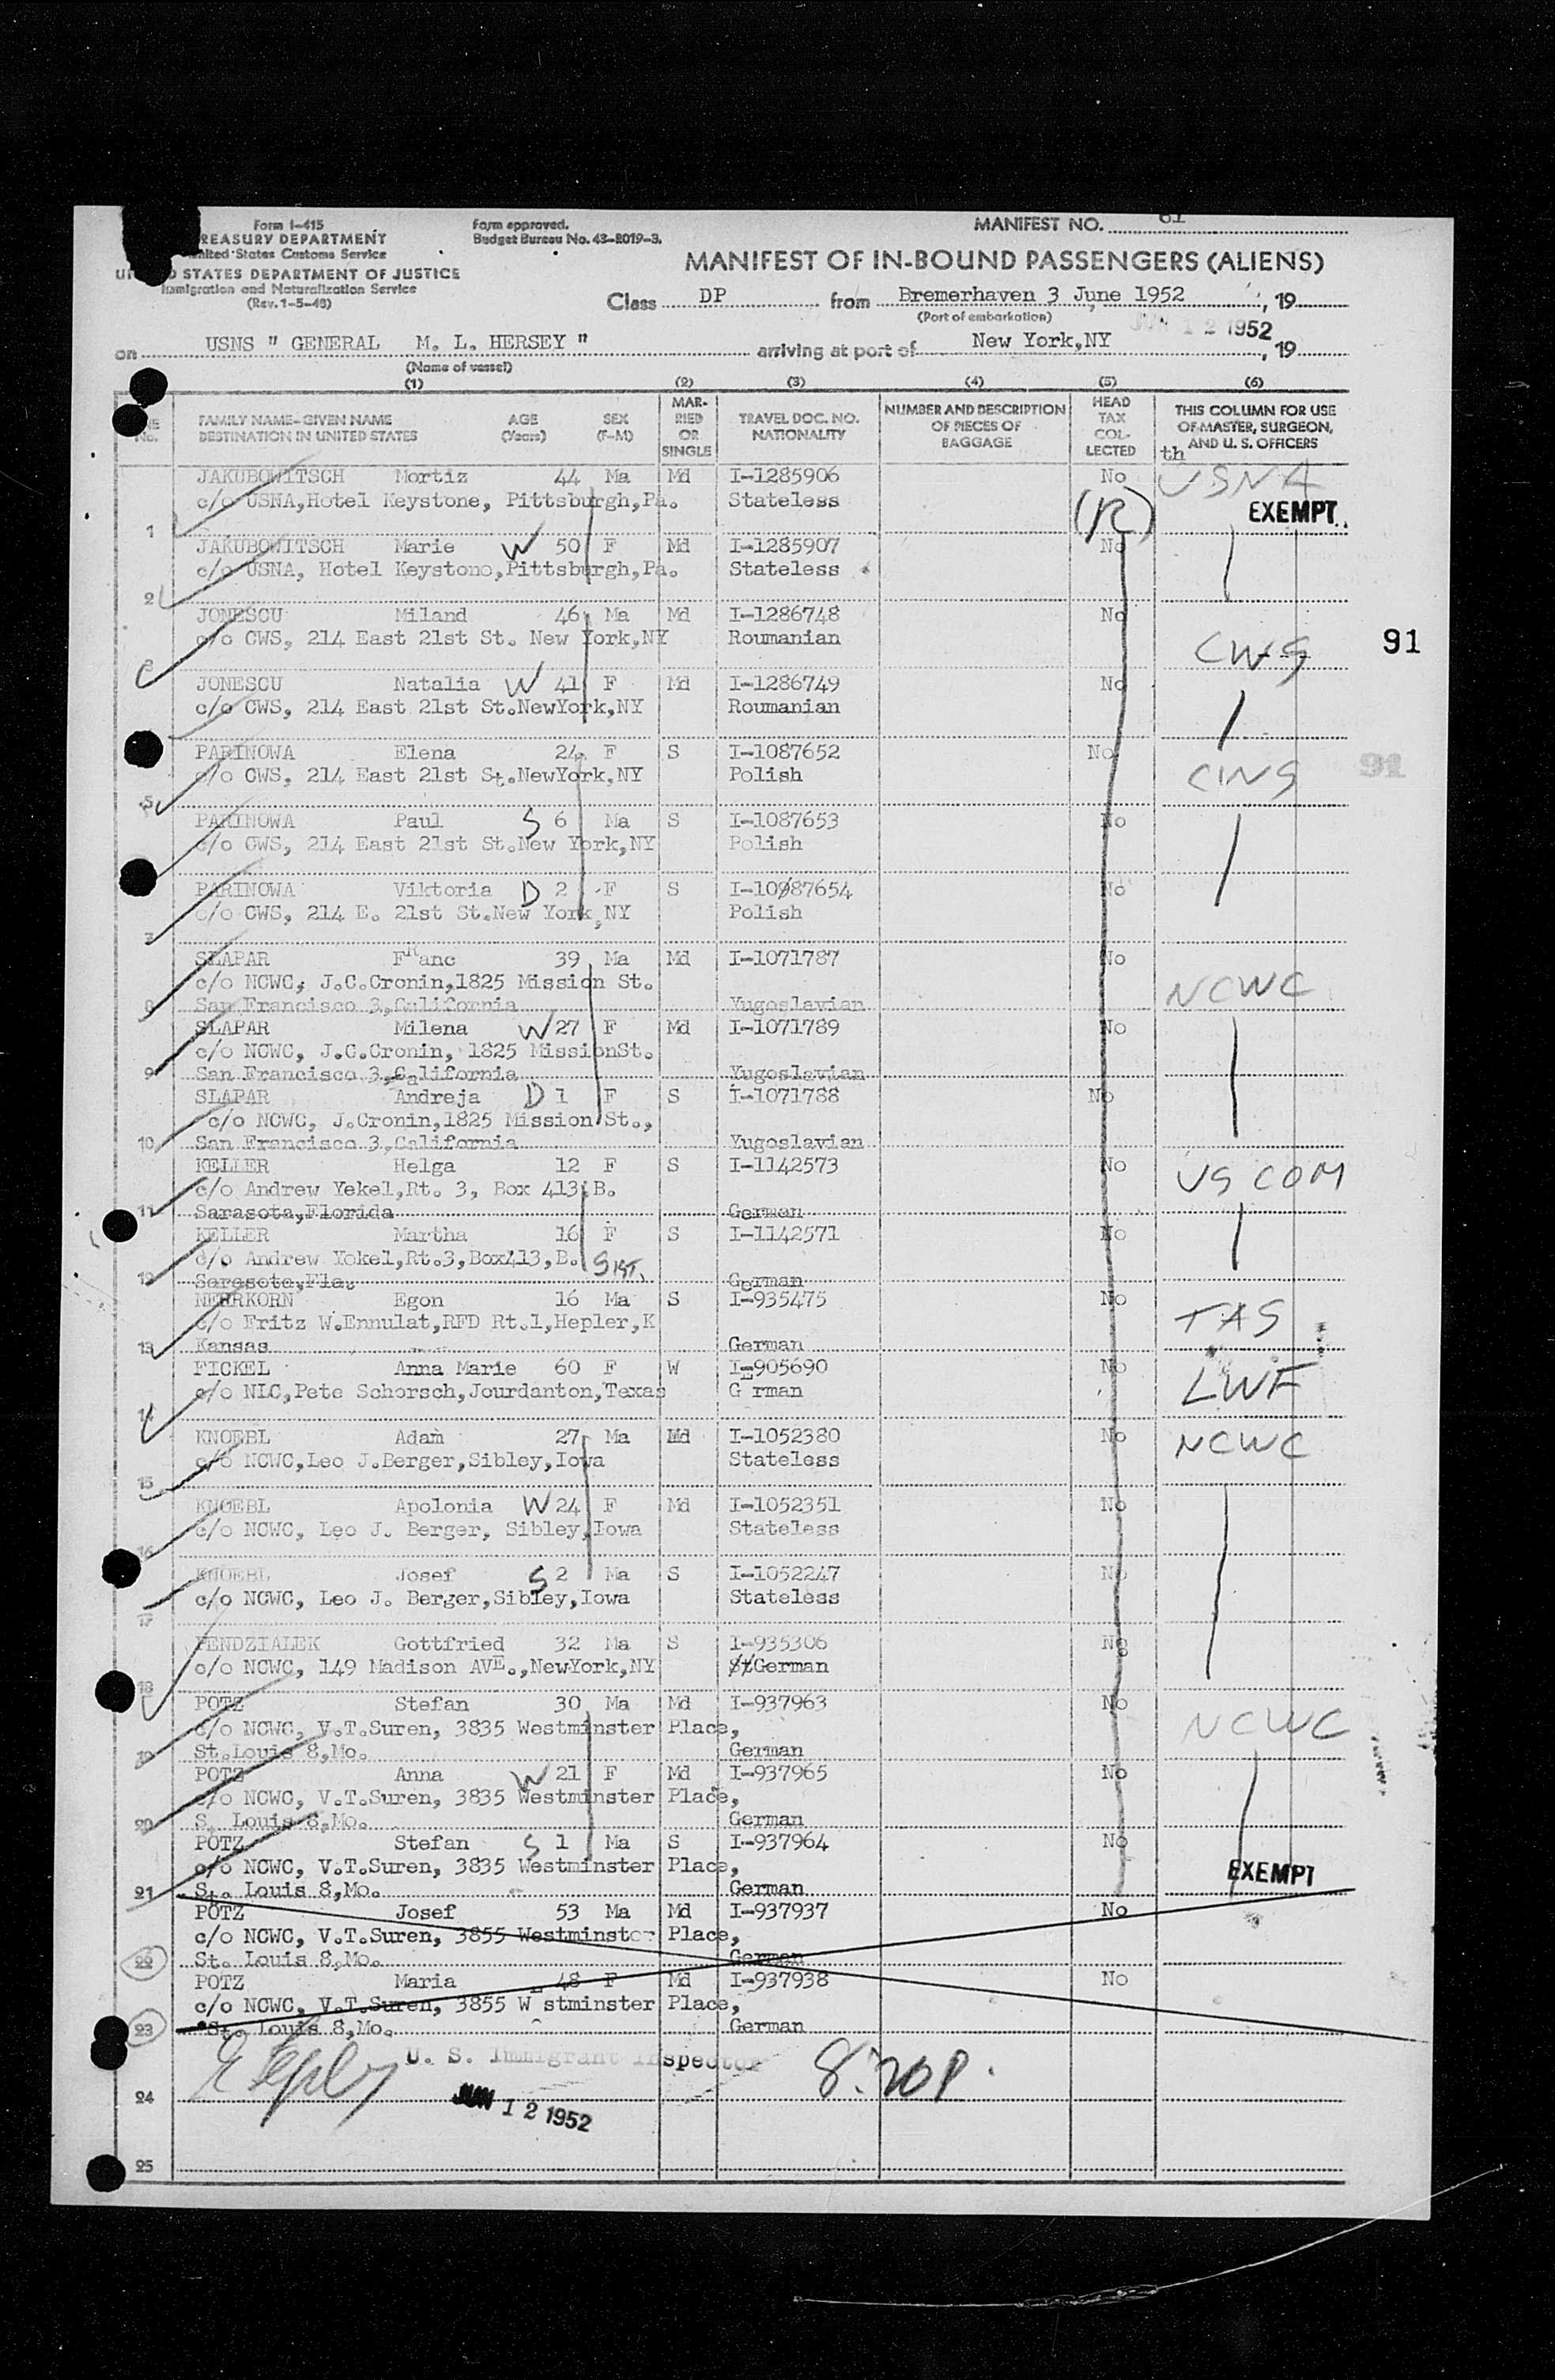 Form I-415
TREASURY DEPARTMENT
United States Customs Service
UNITED STATES DEPARTMENT OF JUSTICE
Immigration and Naturalization Service
(Rev. 1-5-48)
Form approved.
Budget Bureau No. 43-R019-3.
MANIFEST NO. 81
MANIFEST OF IN-BOUND PASSENGERS (ALIENS)
Class DP from Bremerhaven 3 June 1952, 19
(Port of embarkation)
JUN 12 1952
on USNS " GENERAL M. L. HERSEY " arriving at port of New York,NY, 19
(Name of vessel)
(1) (2) (3) (4) (5) (6)
LINE No. FAMILY NAME-GIVEN NAME DESTINATION IN UNITED STATES AGE (Years) SEX (F-M) MARRIED OR SINGLE TRAVEL DOC. NO. NATIONALITY NUMBER AND DESCRIPTION OF PIECES OF BAGGAGE HEAD TAX COLLECTED THIS COLUMN FOR USE OF MASTER, SURGEON, AND U. S. OFFICERS
th
JAKUBOWITSCH Mortiz 44 Ma Md I-1285906 No USNA
c/o USNA,Hotel Keystone, Pittsburgh,Pa. Stateless (R) EXEMPT
1
JAKUBOWITSCH Marie W 50 F Md I-1285907 No
c/o USNA, Hotel Keystone,Pittsburgh,Pa. Stateless
2
JONESCU Miland 46 Ma Md I-1286748 No
c/o CWS, 214 East 21st St. New York,NY Roumanian CWS 91
3
JONESCU Natalia W 41 F Md I-1286749 No
c/o CWS, 214 East 21st St.NewYork,NY Roumanian
PARINOWA Elena 24 F S I-1087652 No
c/o CWS, 214 East 21st St.NewYork,NY Polish CWS 91
5
PARINOWA Paul S 6 Ma S I-1087653 No
c/o CWS, 214 East 21st St.New York,NY Polish
PARINOWA Viktoria D 2 F S I-10987654 No
c/o CWS, 214 E. 21st St.New York,NY Polish
7
SLAPAR FRanc 39 Ma Md I-1071787 No
c/o NCWC, J.C.Cronin,1825 Mission St. NCWC
8 San Francisco 3,California Yugoslavian
SLAPAR Milena W 27 F Md I-1071789 No
c/o NCWC, J.C.Cronin, 1825 MissionSt.
9 San Francisco 3,California Yugoslavian
SLAPAR Andreja D 1 F S I-1071788 No
c/o NCWC, J.Cronin,1825 Mission St.,
10 San Francisco 3,California Yugoslavian
KELLER Helga 12 F S I-1142573 No US COM
c/o Andrew Yekel,Rt. 3, Box 413,B.
11 Sarasota,Florida German
KELLER Martha 16 F S I-1142571 No
c/o Andrew Yokel,Rt.3,Box413,B. SIST.
12 Sarasota,Fla. German
NEHRKORN Egon 16 Ma S I-935475 No TAS
c/o Fritz W.Ennulat,RFD Rt.1,Hepler,K
13 Kansas German
FICKEL Anna Marie 60 F W I-905690 No LWF
c/o NLC,Pete Schorsch,Jourdanton,Texas G rman
14
KNOEBL Adam 27 Ma Md I-1052380 No NCWC
c/o NCWC,Leo J.Berger,Sibley,Iowa Stateless
15
KNOEBL Apolonia W 24 F Md I-1052351 No
c/o NCWC, Leo J. Berger, Sibley,Iowa Stateless
16
KNOEBL Josef S 2 Ma S I-1052247 No
c/o NCWC, Leo J. Berger,Sibley,Iowa Stateless
17
PENDZIALEK Gottfried 32 Ma S I-935306 No
c/o NCWC, 149 Madison AVE.,NewYork,NY StGerman
18
POTZ Stefan 30 Ma Md I-937963 No
c/o NCWC, V.T.Suren, 3835 Westminster Place, NCWC
19 St.Louis 8,Mo. German
POTZ Anna W 21 F Md I-937965 No
c/o NCWC, V.T.Suren, 3835 Westminster Place,
20 S. Louis 8,Mo. German
POTZ Stefan S 1 Ma S I-937964 No
c/o NCWC, V.T.Suren, 3835 Westminster Place, EXEMPT
21 St. Louis 8,Mo. German
POTZ Josef 53 Ma Md I-937937 No
c/o NCWC, V.T.Suren, 3855 Westminster Place,
22 St. Louis 8,Mo. German
POTZ Maria 48 F Md I-937938 No
c/o NCWC, V.T.Suren, 3855 W stminster Place,
23 St. Louis 8,Mo. German
U. S. Immigrant Inspector 8:20P.
24 JUN 12 1952
25